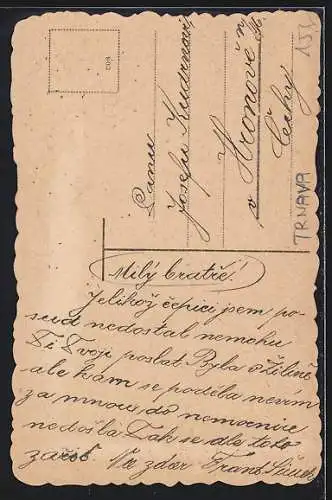 602
Panu
Josefu Kudrnovi
v Hronově n
Čechy
TRNAVA
Milý bratře!
Jelikož čepici jsem po-
sud nedostal nemohu
Ti Tvoji poslat Byla v Žilině
ale kam se poděla nevím
za mnou do nemocnice
nedošla Tak se dle toho
zařiď Na zdar Frant.